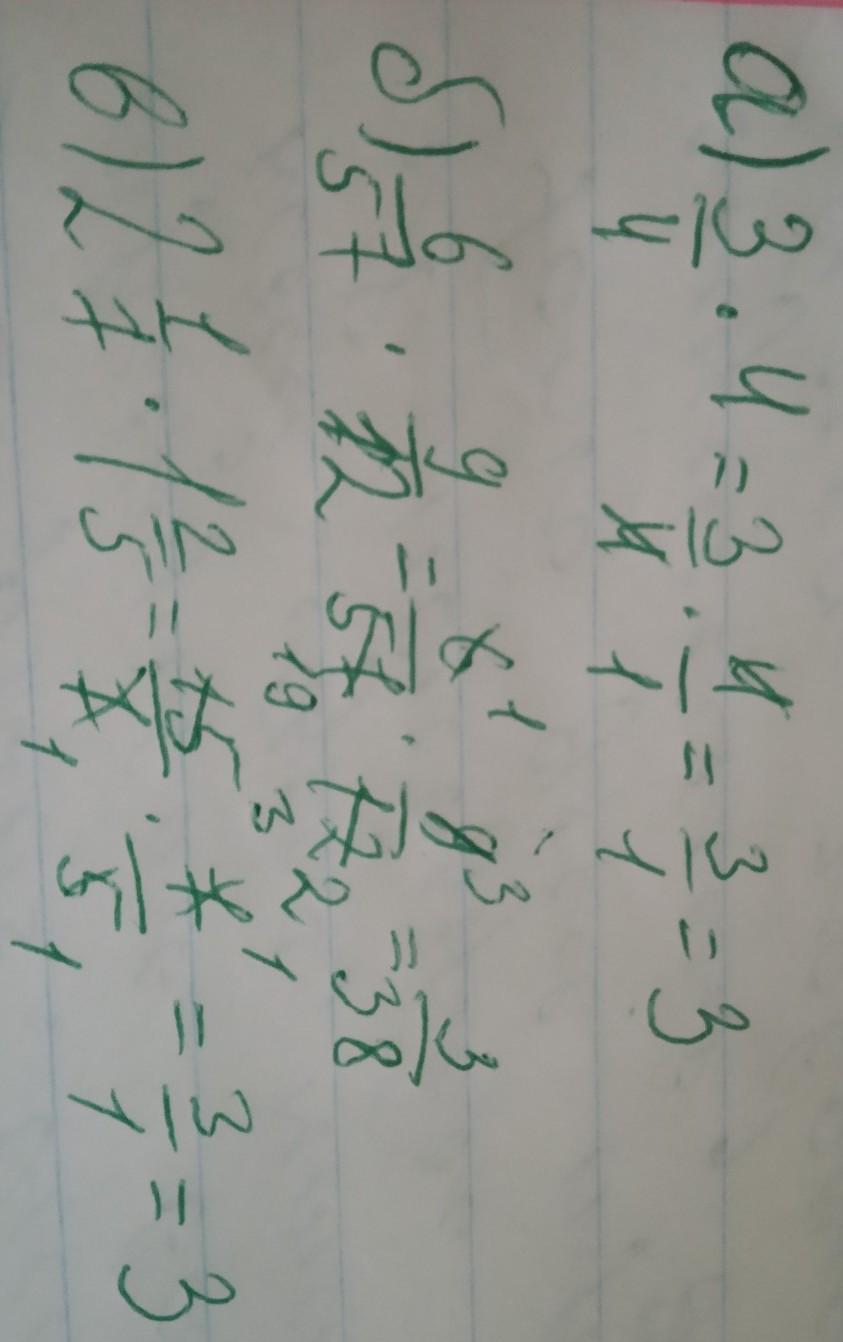 а) 3/4 · 4 = 3/4 · 4/1 = 3/1 = 3
б) 6/57 · 9/12 = 6 1/57 19 · 9 3/12 2 = 3/38
в) 2 1/7 · 1 2/5 = 15 3/7 1 · 7 1/5 1 = 3/1 = 3